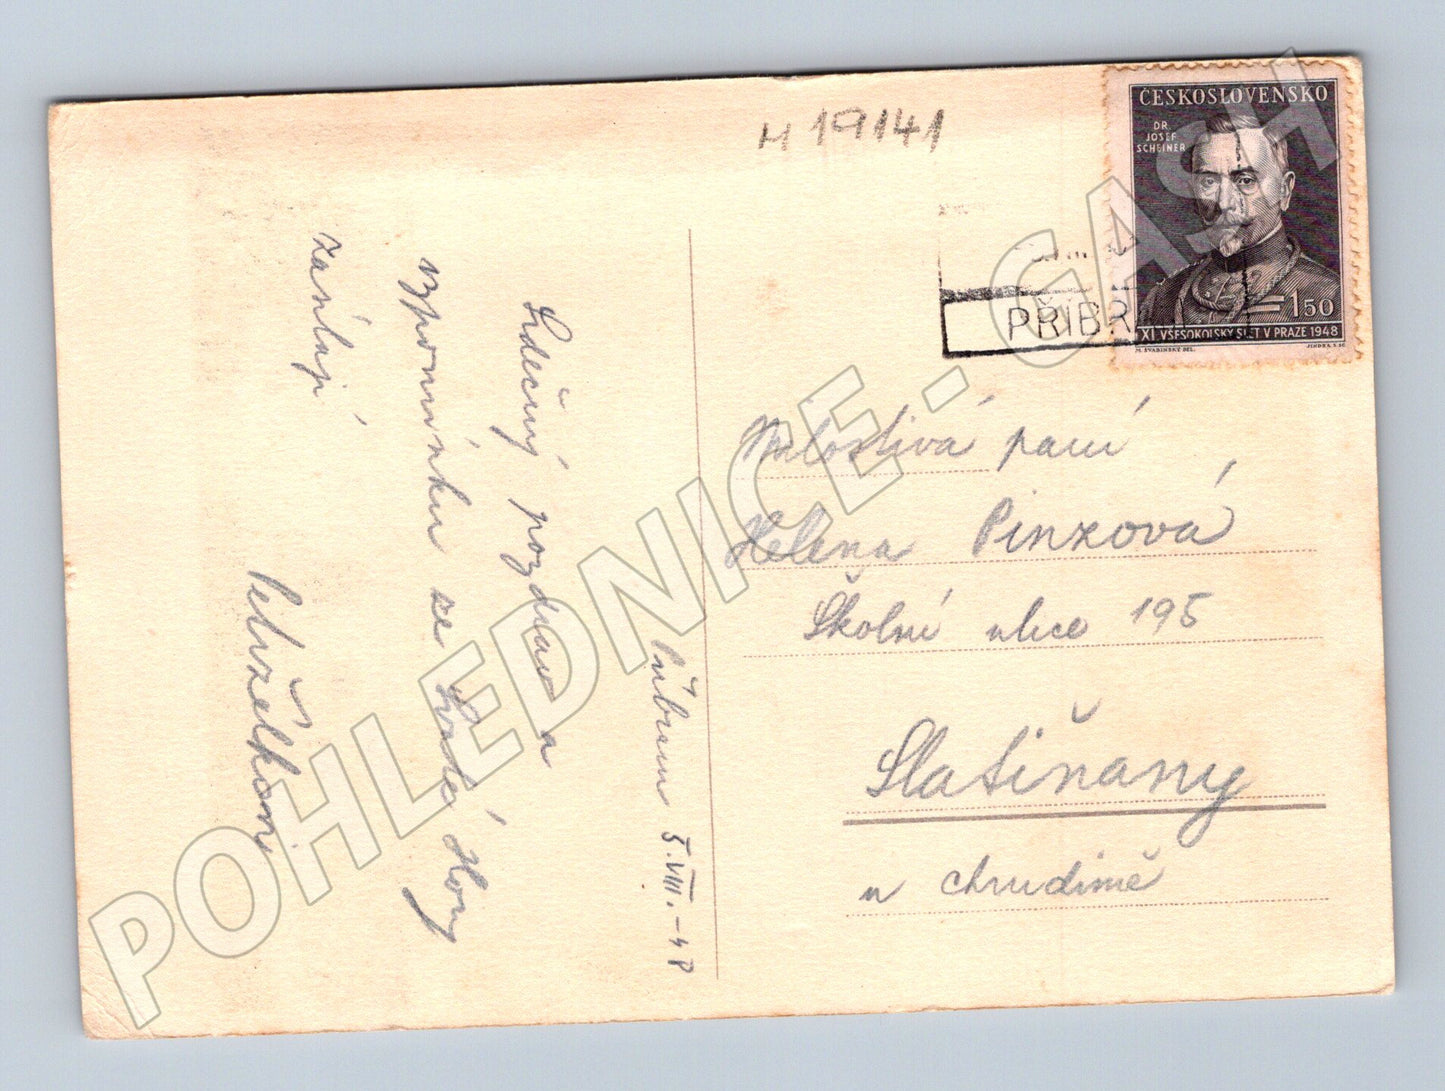 H 19141
ČESKOSLOVENSKO
DR.
JOSEF
SCHEINER
1 50
XI. VŠESOKOLSKÝ SLET V PRAZE 1948
M. ŠVABINSKÝ DEL.
JINDRA SC.
PŘÍBR
Příbram 5.VIII.-48
Srdečný pozdrav a
vzpomínku ze Svaté Hory
zasílají
Petrželkovi
Milostivá paní
Helena Pinxová
Školní ulice 195
Slatiňany
u Chrudimě
POHLEDNICE - GASH